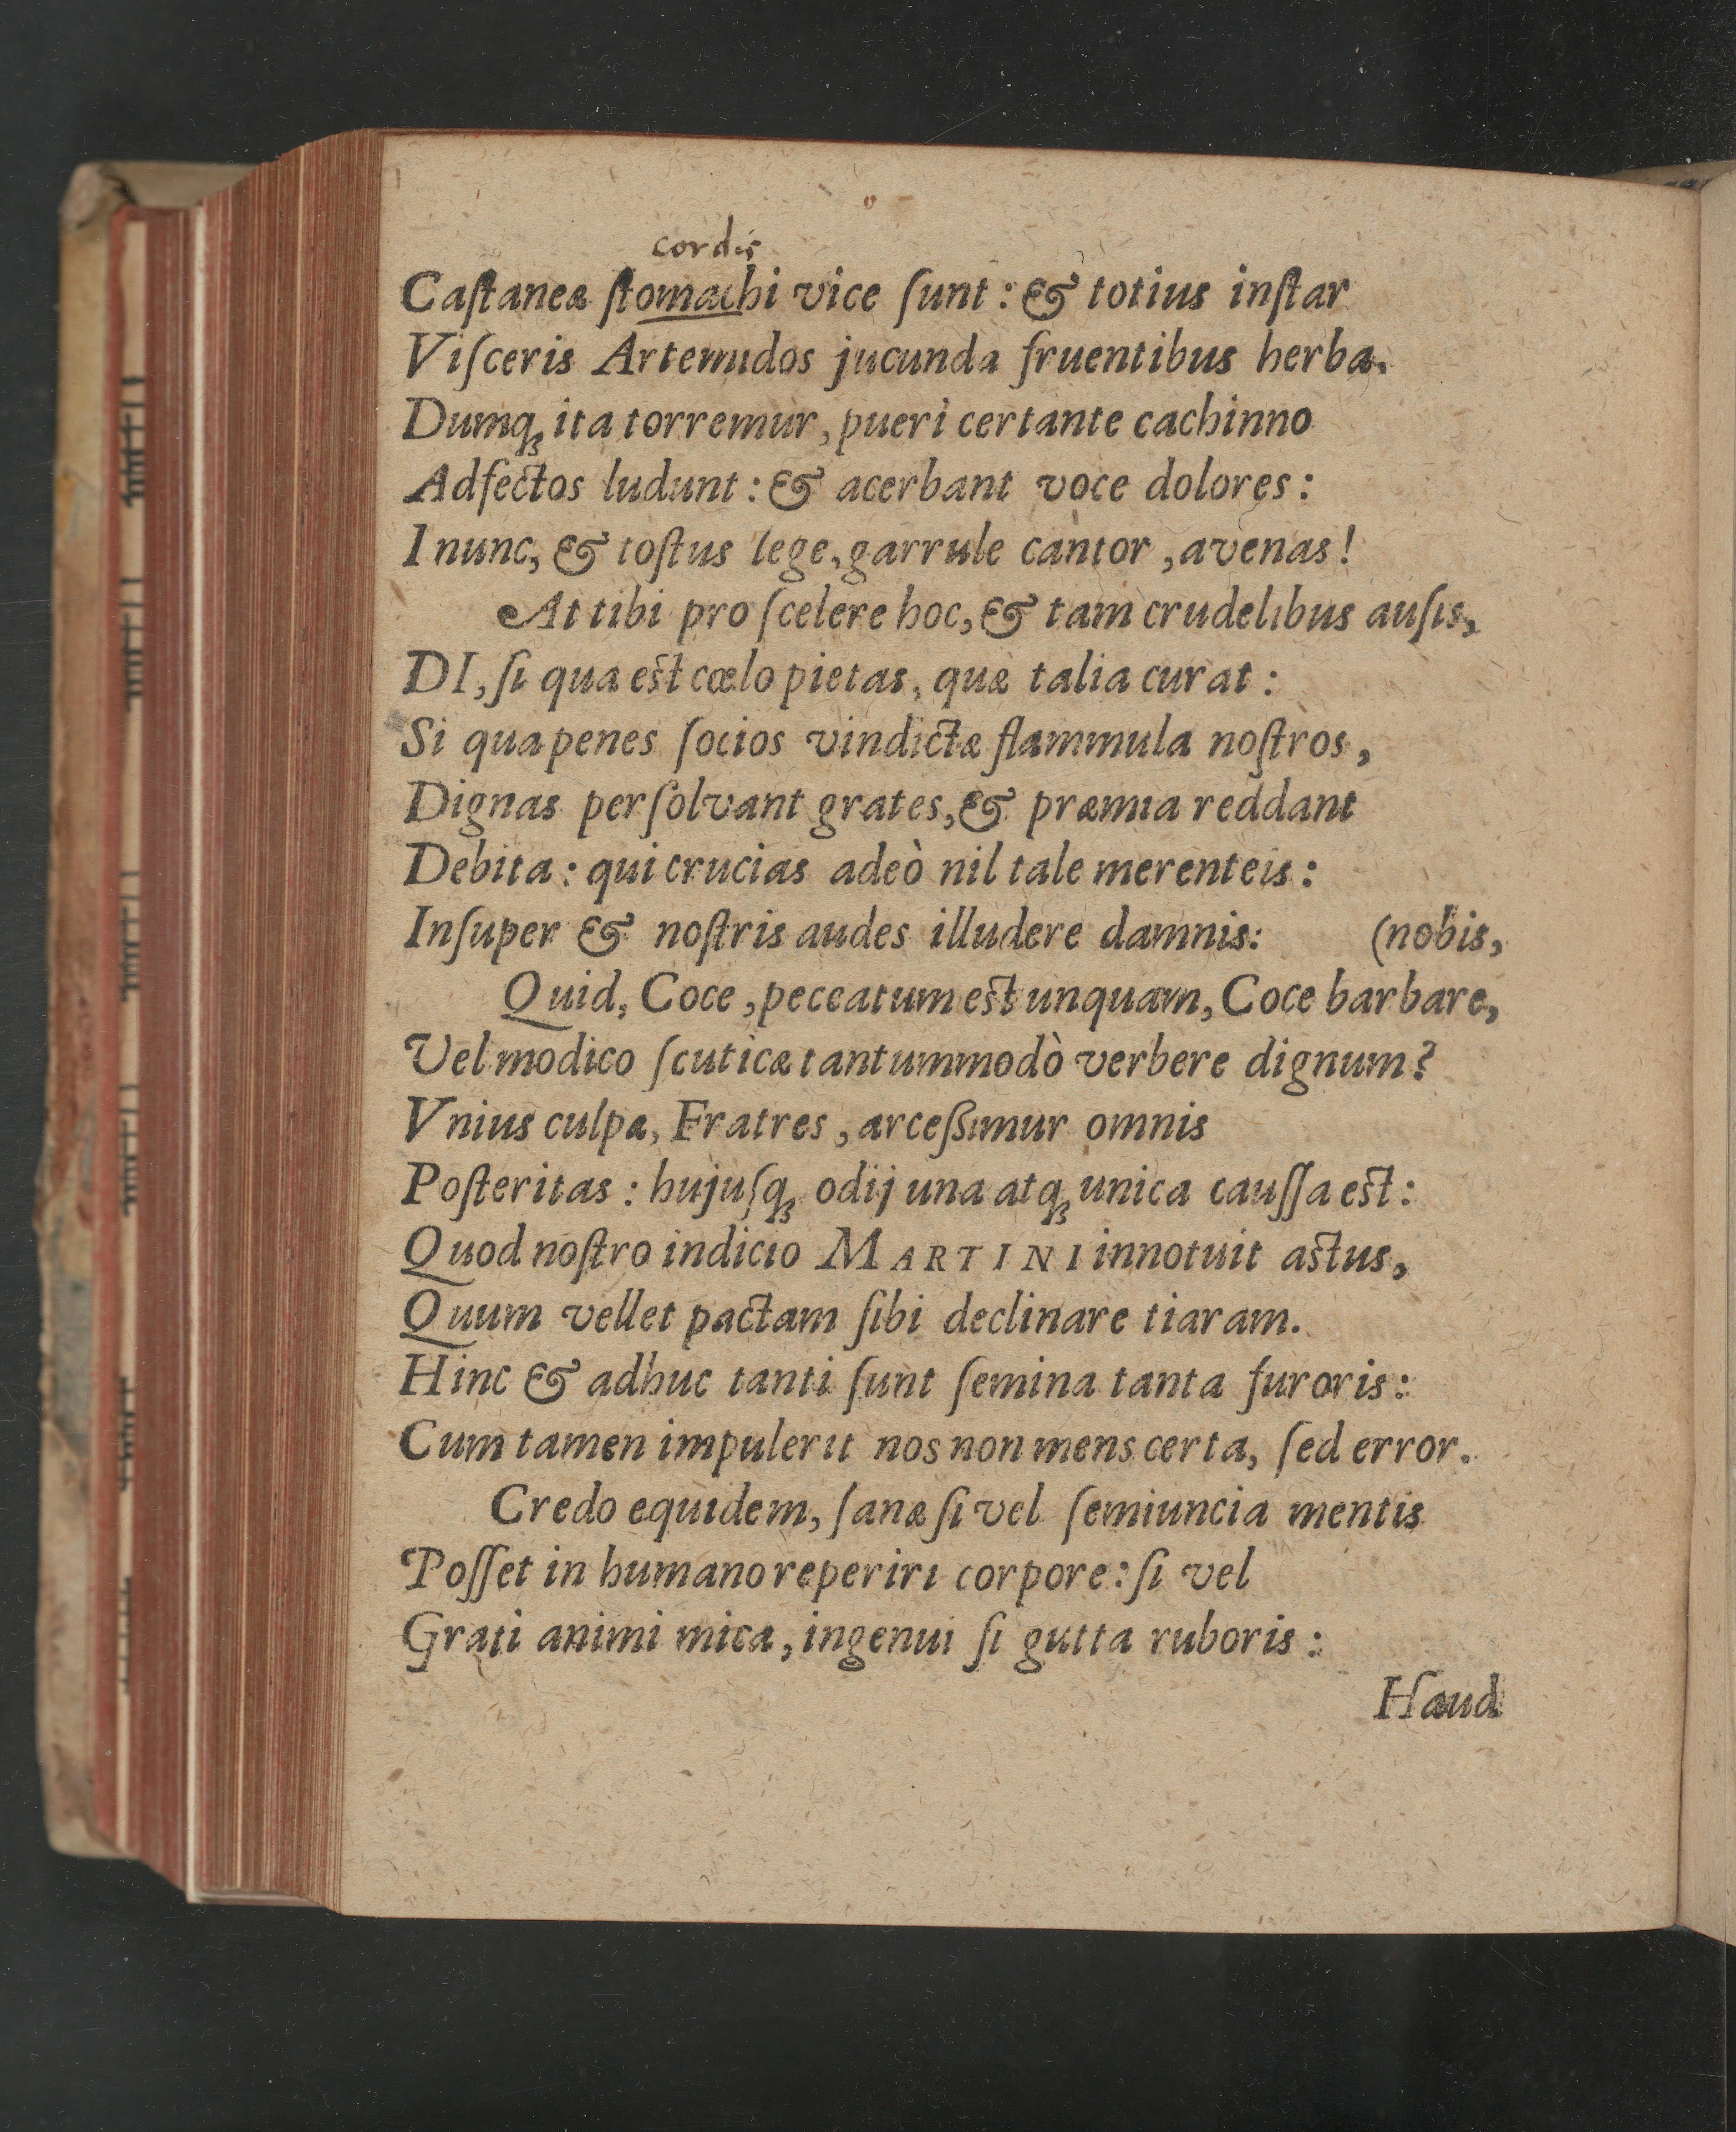 cordis
Caſtaneæ ſtomachi vice ſunt: & totius inſtar
Viſceris Artemidos jucunda fruentibus herba.
Dumqꝫ ita torremur, pueri certante cachinno
Adfectos ludunt: & acerbant voce dolores:
I nunc, & toſtus lege, garrule cantor, avenas!
At tibi pro ſcelere hoc, & tam crudelibus auſis,
DI, ſi qua est cœlo pietas, quæ talia curat:
Si qua penes ſocios vindictæ flammula noſtros,
Dignas perſolvant grates, & præmia reddant
Debita: qui crucias adeò nil tale merenteis:
Inſuper & noſtris audes illudere damnis: (nobis,
Quid, Coce, peccatum est unquam, Coce barbare,
Vel modico ſcuticæ tantummodò verbere dignum?
Vnius culpa, Fratres, arceßimur omnis
Poſteritas: hujuſqꝫ odij una atqꝫ unica cauſſa est:
Quod noſtro indicio MARTINI innotuit astus,
Quum vellet pactam ſibi declinare tiaram.
Hinc & adhuc tanti ſunt ſemina tanta furoris:
Cum tamen impulerit nos non mens certa, ſed error.
Credo equidem, ſanæ ſi vel ſemiuncia mentis
Poſſet in humano reperiri corpore: ſi vel
Grati animi mica, ingenui ſi gutta ruboris:
Haud